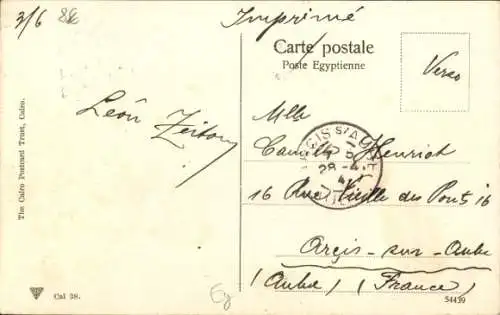 3/6
Imprimé
Carte postale
Poste Egyptienne
Verso
Léon Zeitoun
Mlle
Camille Henriot
16 Rue Vieille des Ponts 16
Arcis-sur-Aube
(Aube) (France)
ARCIS S/AUBE
28-4
The Cairo Postcard Trust, Cairo.
Cal 38.
Eg
54439